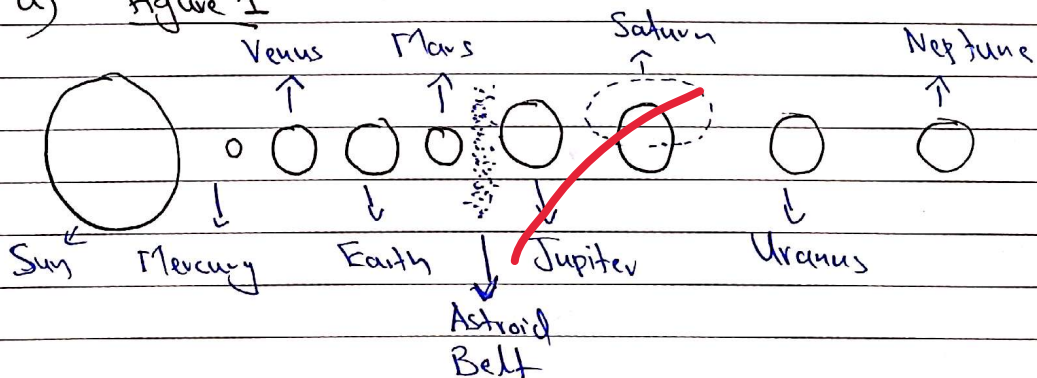 a) Figure 1
Venus Mars Saturn Neptune
Sun Mercury Earth Jupiter Uranus
Astroid
Belt